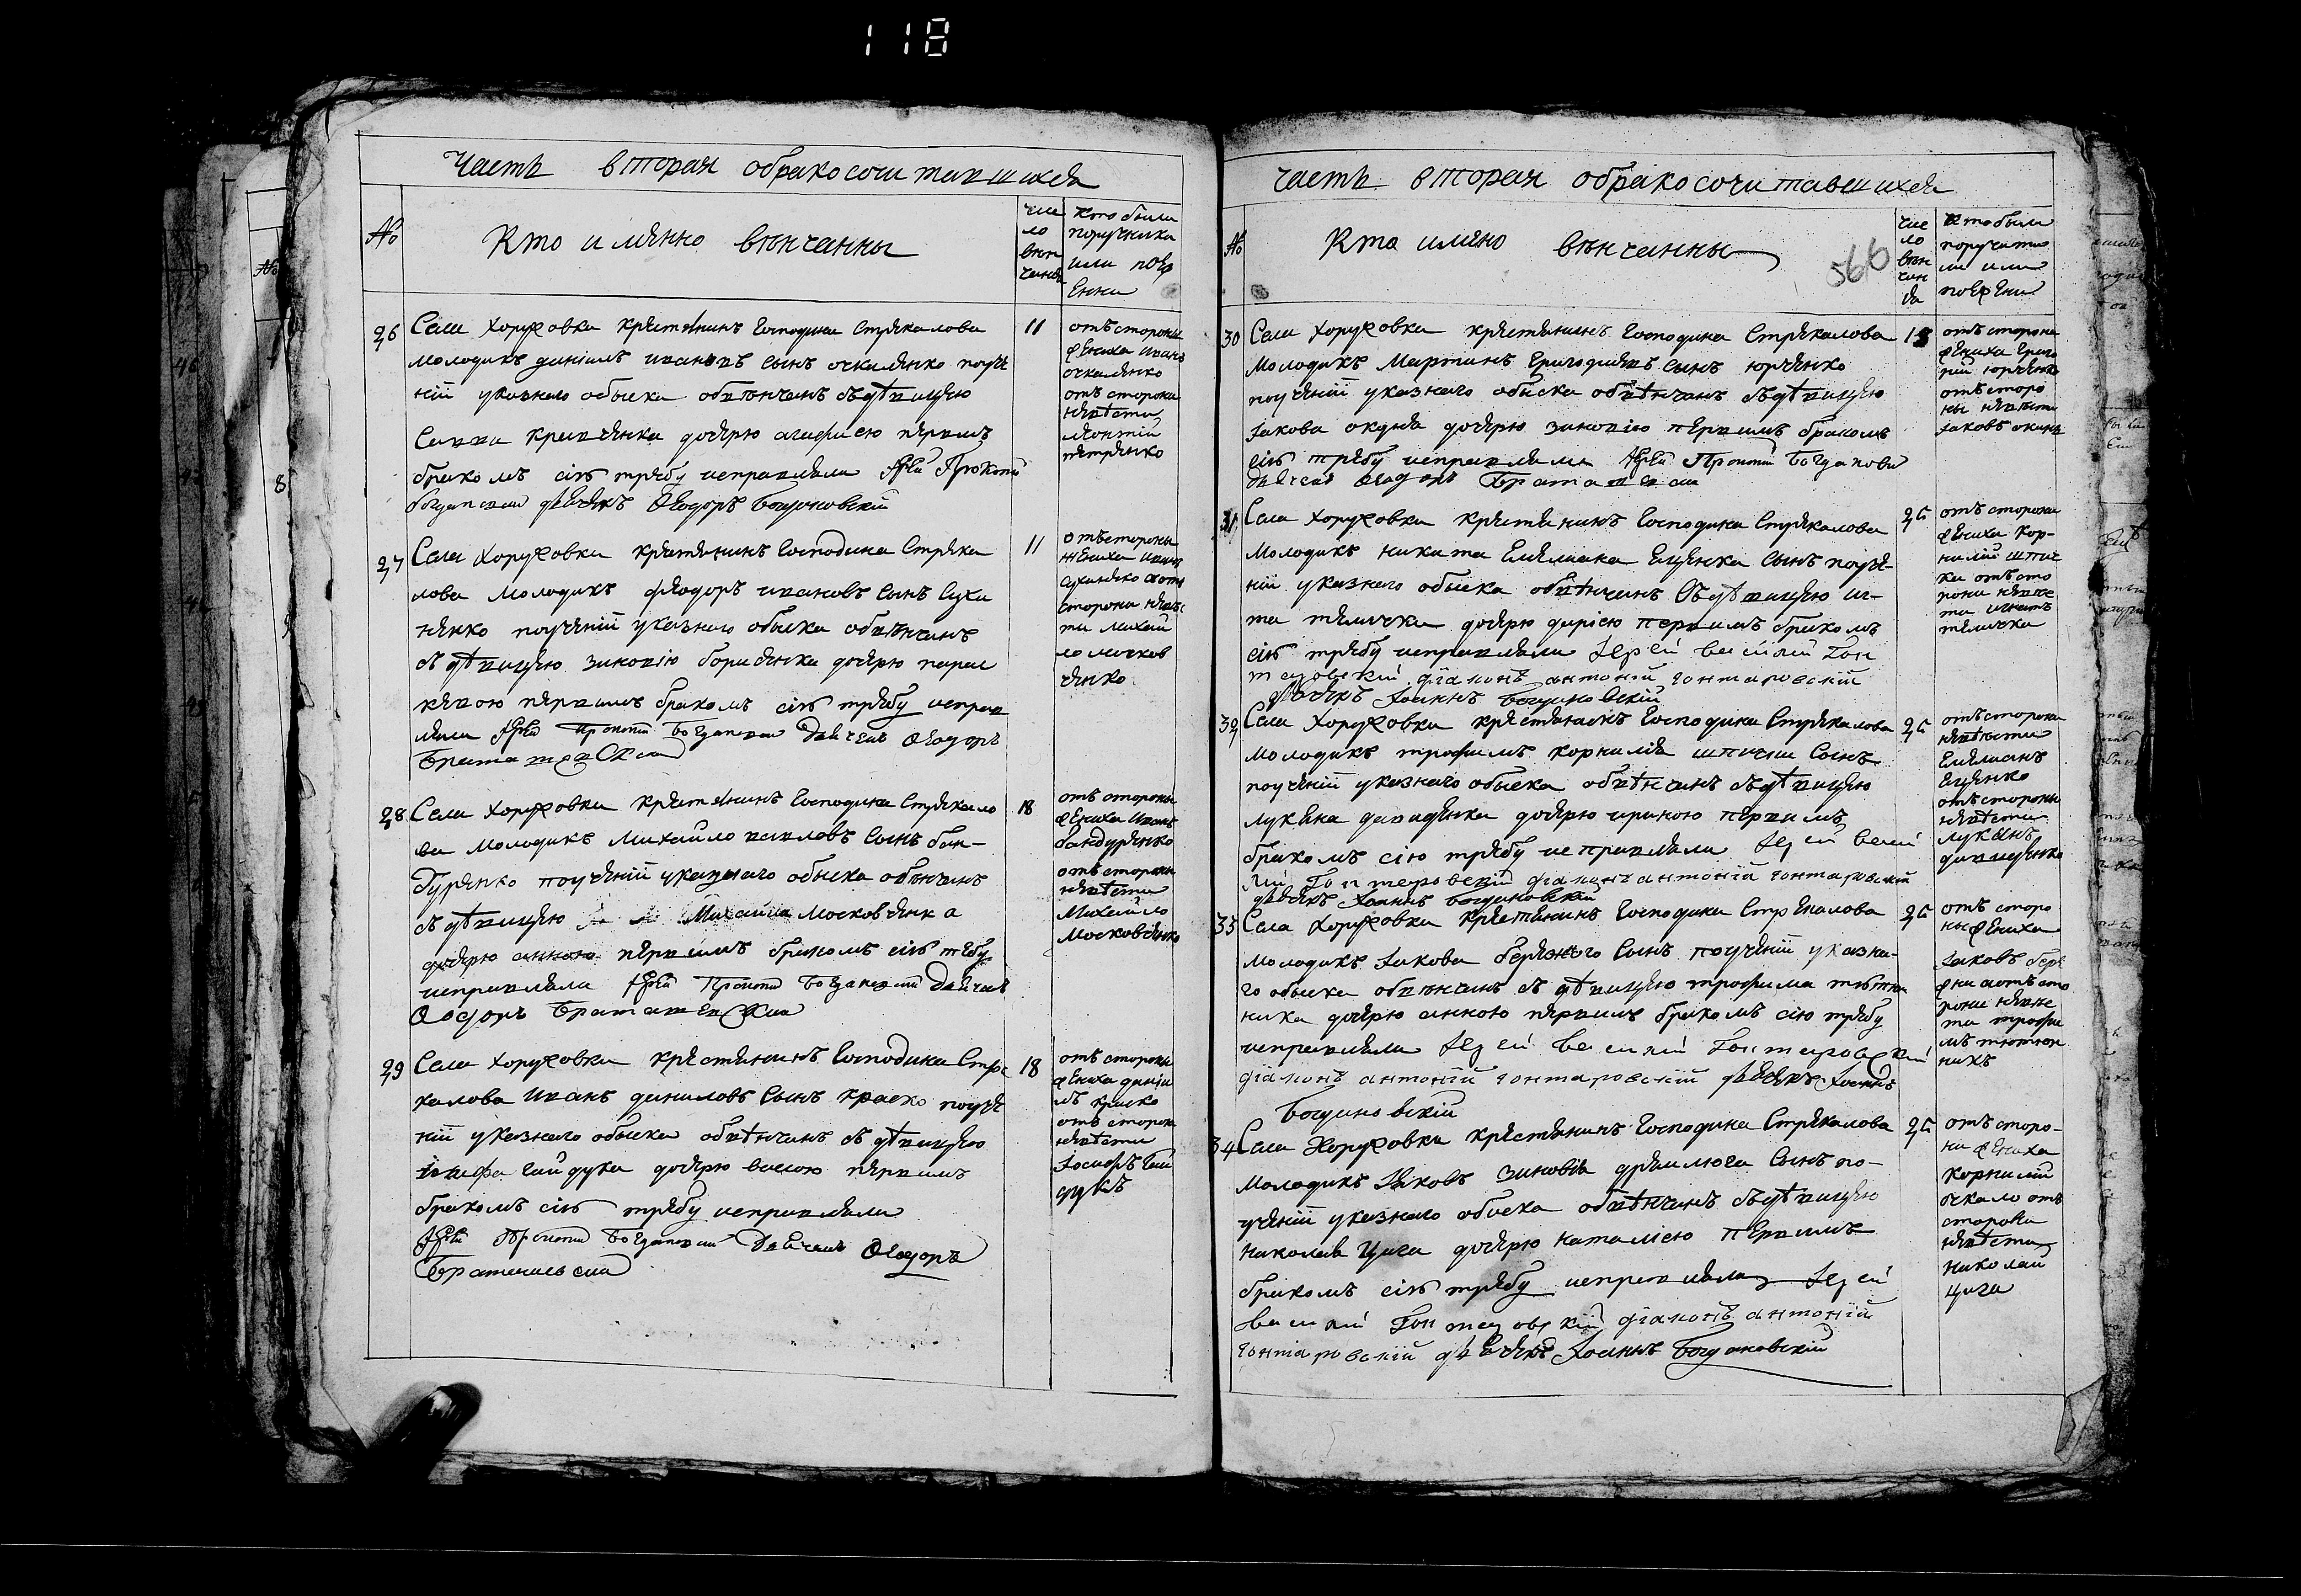 118
Часть вторая обракосочитавшихся
№
Кто имянно венчанны
числo венчанія
Кто были
поручники
или поез
жени
26
Села Хоружовки крестянинъ Господина Стрекалова
11
молодикъ данiилъ ивановъ сынъ очкаленко поуче
ніи указнаго обыска обвѣнчанъ съдѣвицею
Саввы кравченка дочерю агафиею первымъ
бракомъ сію требу исправляли Іерей Прокопій
Богдановскій дьячекъ Ѳеодоръ
отъ стороны
жениха иванъ
очкаленко
отъ стороны
невѣсти
леонтій
петренко
27
Села Хоружовки крестянинъ Господина Стрека
11
лова молодикъ феодоръ ивановъ сынъ Сухи
ненко поученіи указнаго обыска обвѣнчанъ
съ дѣвицею зиновію дочерю парас
кевою первымъ бракомъ сію требу исправ
ляли Іерей Прокопій Богдановскій Дьячекъ Ѳеодоръ
отъ стороны
жениха иванъ
сухиненко отъ
стороны невѣс
ти михай
ло
ченко
28
Села Хоружовки крестянинъ Господина Стрекало
18
ва молодикъ Михайло павловъ сынъ бан-
дуренко поученіи указнаго обыска обвѣнчанъ
съ дѣвицею Михайла Московченка
дочерю анною первымъ бракомъ сію требу
исправляли Іерей Прокопій Богдановскій Дьячекъ
Ѳеодоръ
отъ стороны
жениха иванъ
бандуренко
отъ стороны
невѣсти
Михайло
Московченко
29
Села Хоружовки крестянинъ Господина Стре
18
калова иванъ даниловъ сынъ краско поуче
ніи указнаго обыска обвѣнчанъ съ дѣвицею
іосифа гайдука дочерю васою первымъ
бракомъ сію требу исправляли
Іерей Прокопій Богдановскій Дьячекъ Ѳеодоръ
отъ стороны
жениха данiи
лъ краско
отъ стороны
невѣсти
Іосифъ гай
дукъ
Часть вторая обракосочитавшихся
№
Кто имяно венчанны
566
Кто были
поручите
ли или
поежени
30
Села Хоружовки крестянинъ Господина Стрекалова
молодикъ Мартинъ Григориевъ сынъ юрченко
поученіи указнаго обыска обвѣнчанъ съдѣвицею
Іакова окуня дочерю зиновію первымъ бракомъ
сію требу исправляли Іерей Прокопій Богдановск
Дьячекъ Ѳеодоръ
отъ стороны
жениха Григо
рій юрченко
отъ сторо
ны невѣсти
Іаковъ окунь
31
Села Хоружовки крестянинъ Господина Стрекалова
25
молодикъ никита Емелиана Еценка сынъ поуче-
ніи указнаго обыска обвѣнчанъ съ дѣвицею иг-
ната телички дочерю дариею первымъ бракомъ
сію требу исправляли Іерей Василий Гон
таровскій діаконъ антоній гонтаровскій
дьячекъ Іоаннъ Богдановскій
отъ стороны
жениха Кор-
нилій шпич
ка отъ сто
роны невѣс
ти игнатъ
теличка
32
Села Хоружовки крестянинъ Господина Стрекалова
25
молодикъ трофимъ корнилія шпички сынъ
поученіи указнаго обыска обвѣнчанъ съдѣвицею
лукяна давиденка дочерю ириною первымъ
бракомъ сію требу исправляли Іерей Васи
лій Гонтаровскій діаконъ антоній гонтаровскій
дьячекъ Іоаннъ Богдановскій
отъ стороны
невѣсти
Емелианъ
Еценко
отъ стороны
невѣсти
лукянъ
давиденко
33
Села Хоружовки крестянинъ Господина Стрекалова
25
молодикъ Іакова бережного сынъ поученіи указна-
го обыска обвѣнчанъ съ дѣвицею трофима тютюн
ника дочерю анною первымъ бракомъ сію требу
исправляли Іерей Василій Гонтаровскій
діаконъ антоній гонтаровскій дьячекъ Іоаннъ
Богдановскій
отъ сторо
ны жениха
Іаковъ бере
жни отъ сто
роны невѣс
ти трофи
мъ тютюн
никъ
34
Села Хоружовки крестянинъ Господина Стрекалова
25
молодикъ Яковъ зиновія сынъ по-
ученіи указнаго обыска обвѣнчанъ съдѣвицею
николая Цига дочерю наталиею первымъ
бракомъ сію требу исправляли Іерей
Василій Гонтаровскій діаконъ антоній
гонтаровскій дьячекъ Іоаннъ Богдановскій
отъ сторо-
ни жениха
корнилій
очкало отъ
стороны
невѣсти
николай
цига